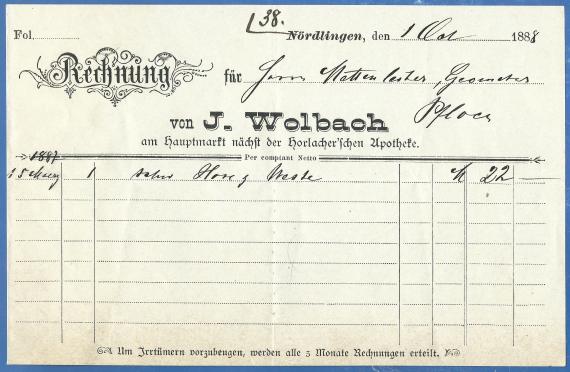 38.
Fol. Nördlingen, den 1 Oct 1888
Rechnung für Herrn Geometer
von J. Wolbach
am Hauptmarkt nächst der Horlacher'schen Apotheke.
Per comptant Netto
1887
1 Hose & Weste M 22 —
Um Irrtümern vorzubeugen, werden alle 3 Monate Rechnungen erteilt.